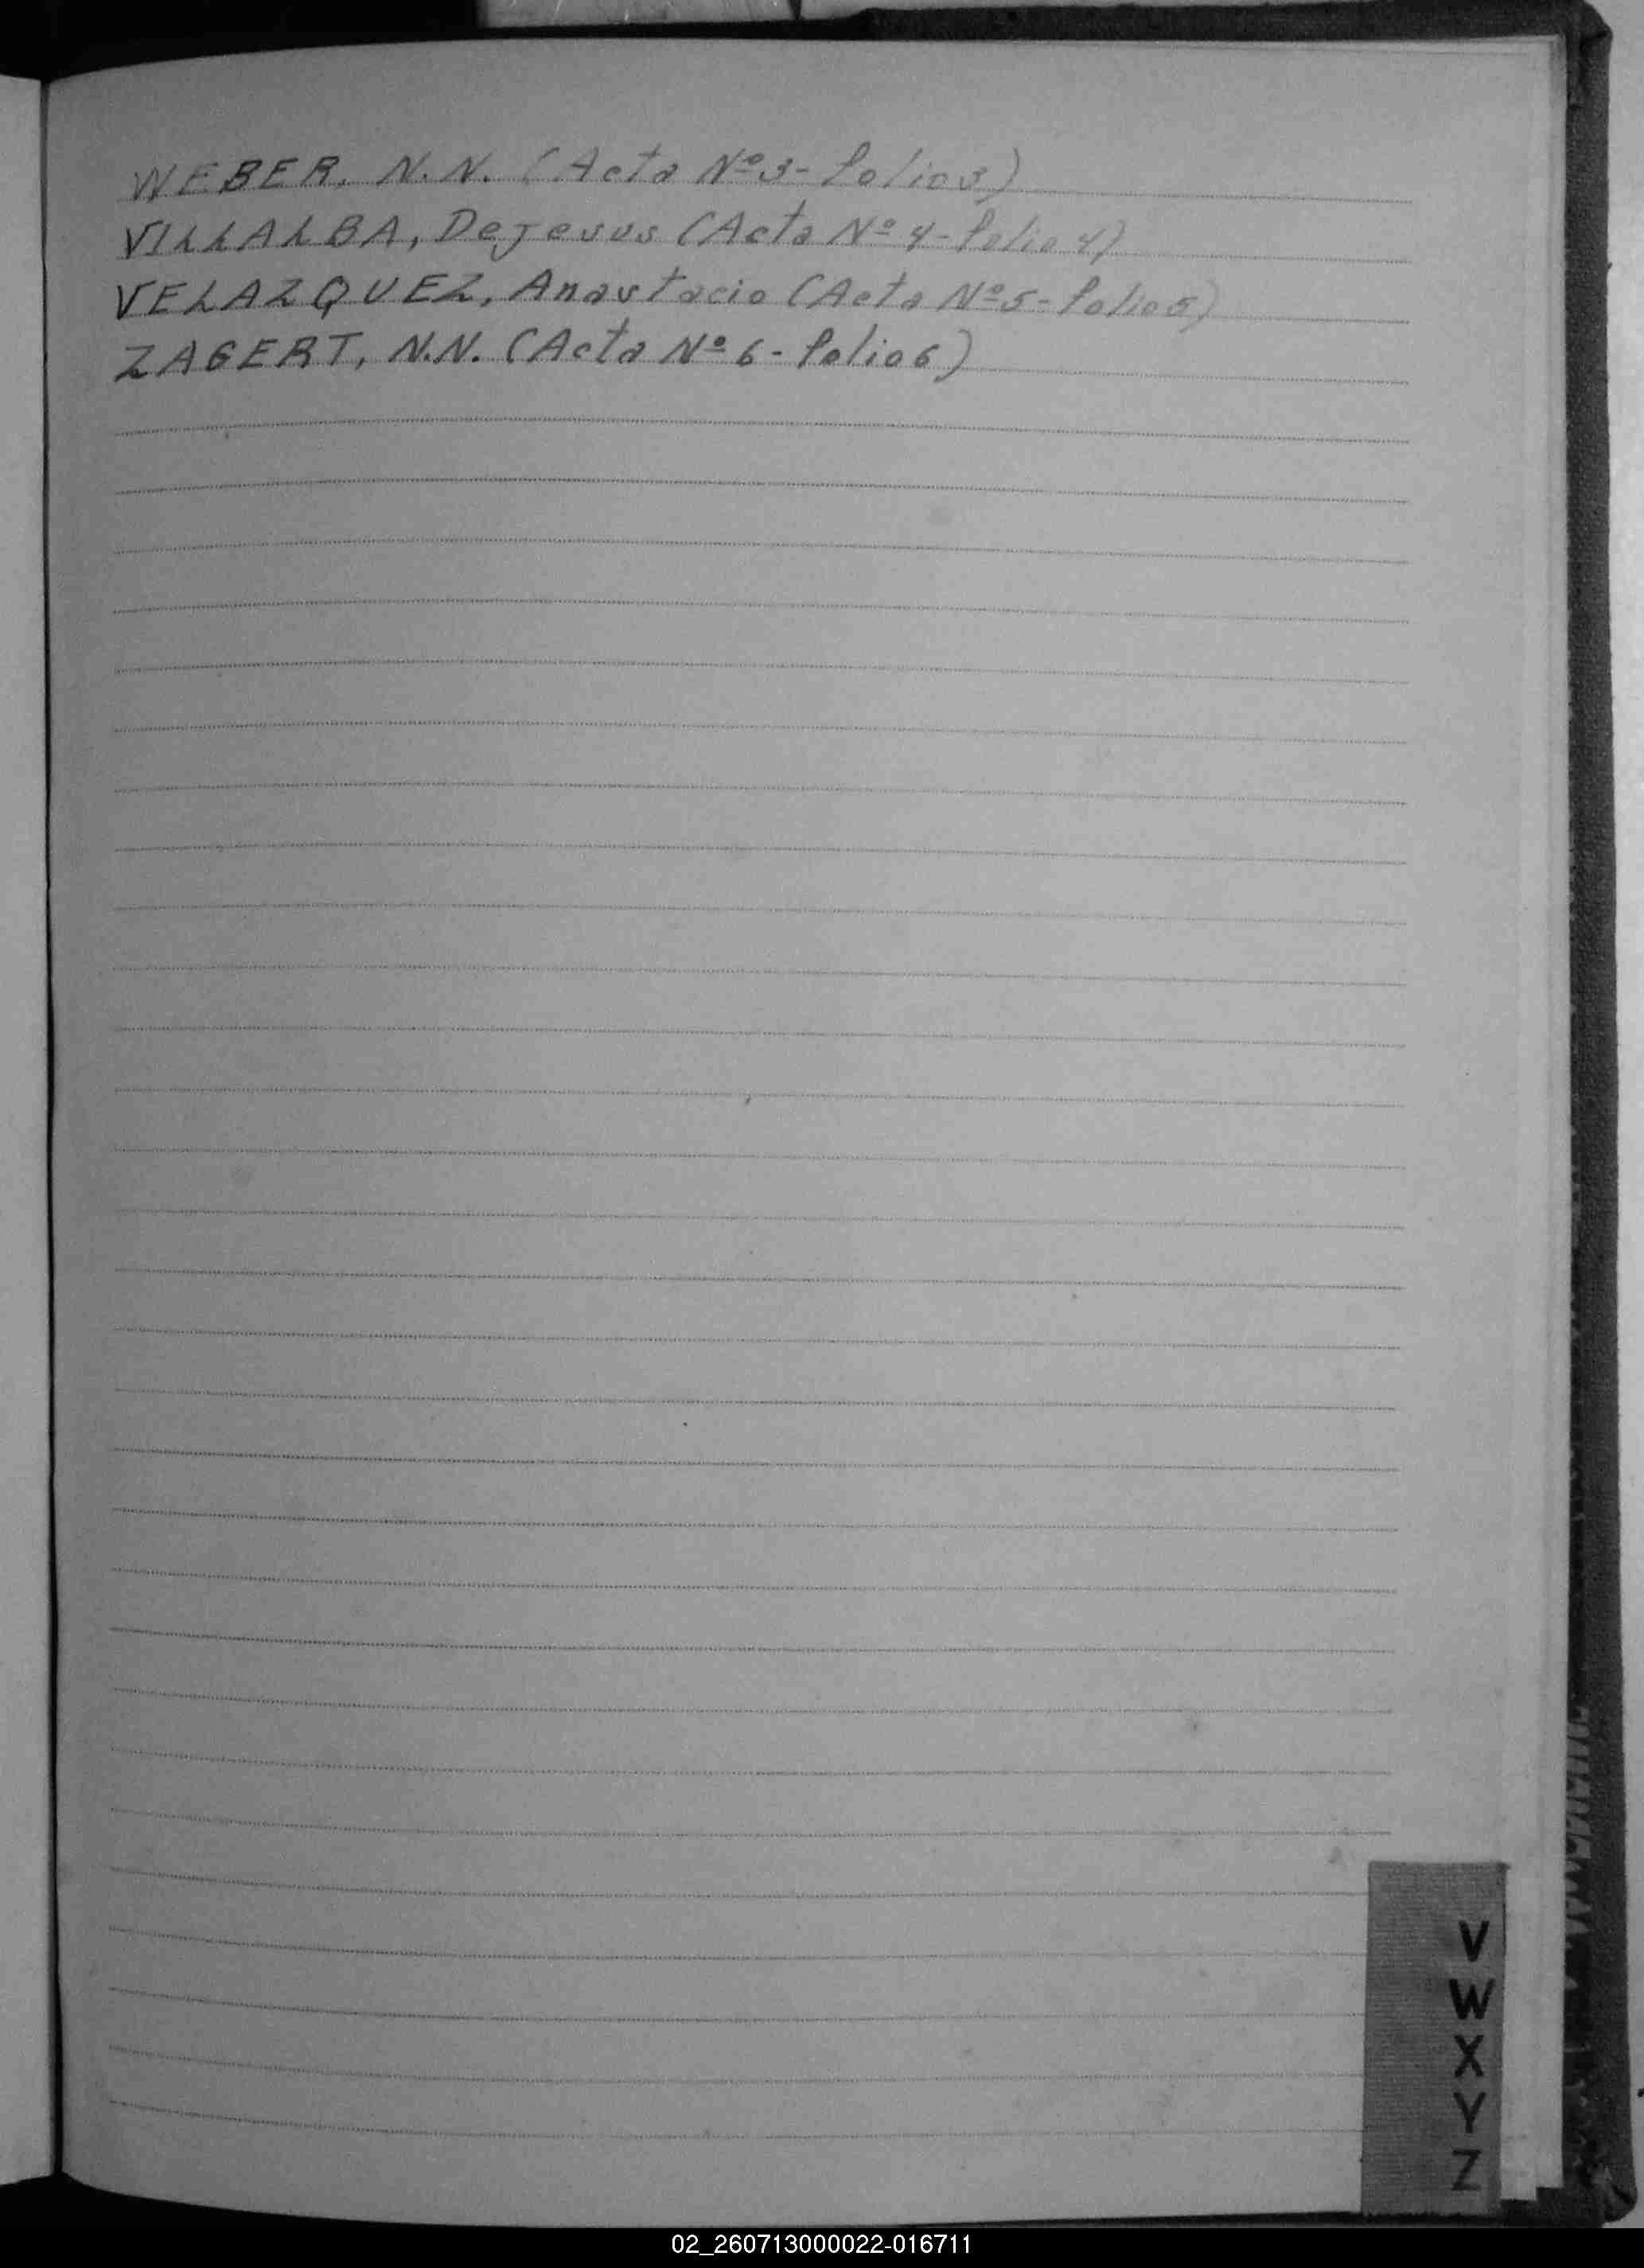 WEBER, N.N. (Acta Nº 3- folio 3)
VILLALBA, Dejesus (Acta Nº 4- folio 4)
VELAZQUEZ, Anastacio (Acta Nº 5- folio 5)
ZAGERT, N.N. (Acta Nº 6- folio 6)
V
W
X
Y
Z
02_260713000022-016711